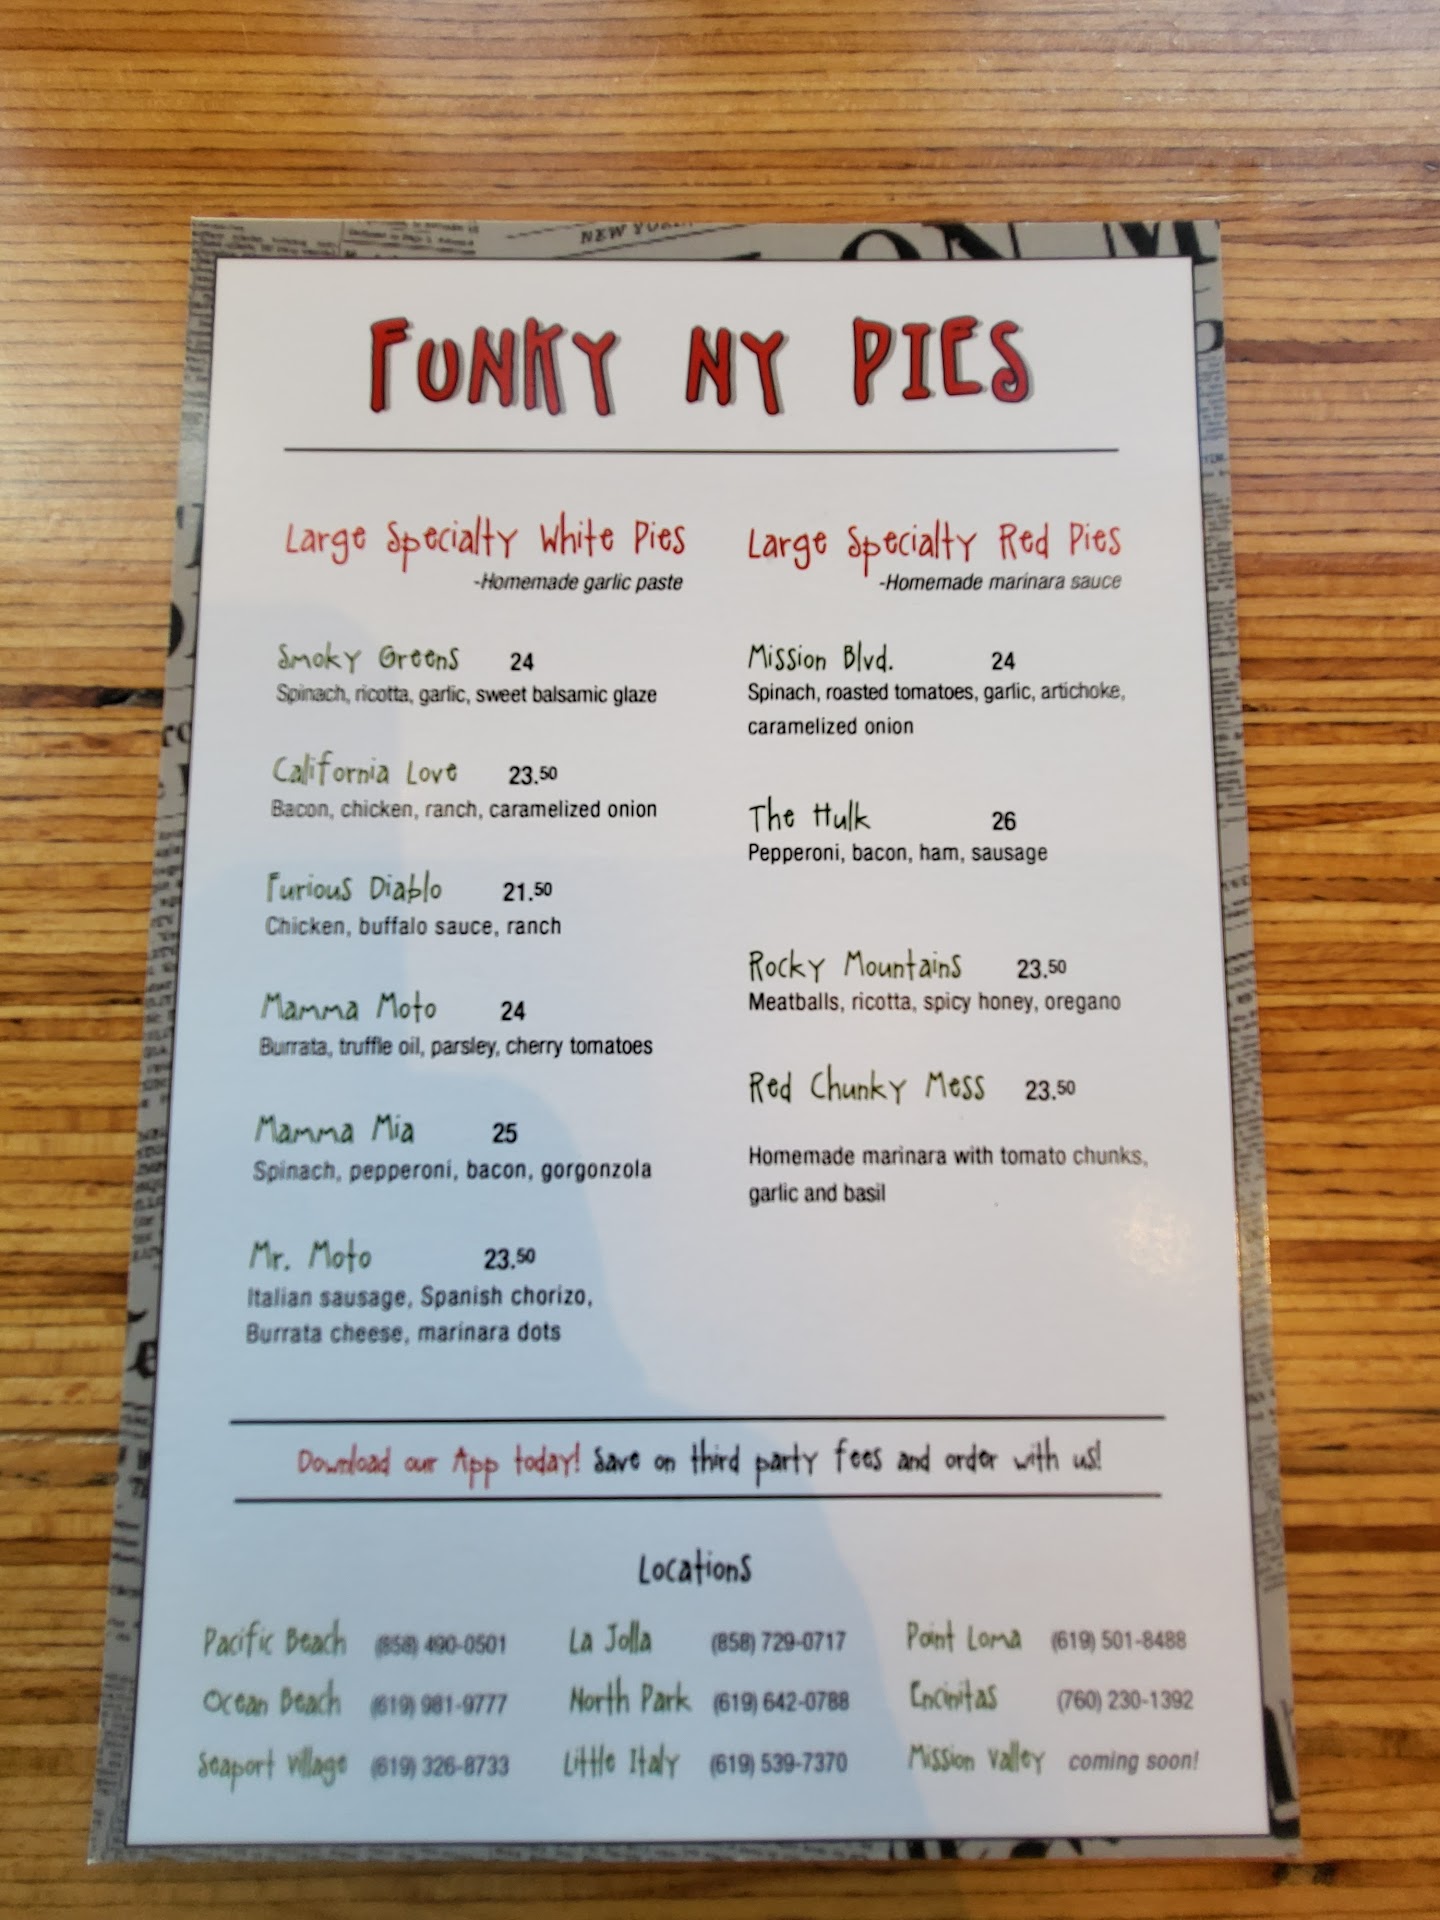 NEW YORK
FUNKY NY PIES
Large Specialty White Pies
-Homemade garlic paste
Smoky Greens 24
Spinach, ricotta, garlic, sweet balsamic glaze
California Love 23.50
Bacon, chicken, ranch, caramelized onion
Furious Diablo 21.50
Chicken, buffalo sauce, ranch
Mamma Moto 24
Burrata, truffle oil, parsley, cherry tomatoes
Mamma Mia 25
Spinach, pepperoni, bacon, gorgonzola
Mr. Moto 23.50
Italian sausage, Spanish chorizo,
Burrata cheese, marinara dots
Large Specialty Red Pies
-Homemade marinara sauce
Mission Blvd. 24
Spinach, roasted tomatoes, garlic, artichoke,
caramelized onion
The Hulk 26
Pepperoni, bacon, ham, sausage
Rocky Mountains 23.50
Meatballs, ricotta, spicy honey, oregano
Red Chunky Mess 23.50
Homemade marinara with tomato chunks,
garlic and basil
Download our App today! Save on third party fees and order with us!
Locations
Pacific Beach (858) 490-0501 La Jolla (858) 729-0717 Point Loma (619) 501-8488
Ocean Beach (619) 981-9777 North Park (619) 642-0788 Encinitas (760) 230-1392
Seaport Village (619) 326-8733 Little Italy (619) 539-7370 Mission Valley coming soon!